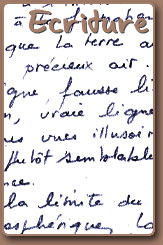 Ecridure
que la terre a
précieux air.
igne, fausse li
n, vraie ligne
us vues illusoir
plutôt semblable
nce.
la limite du
osphérique. La